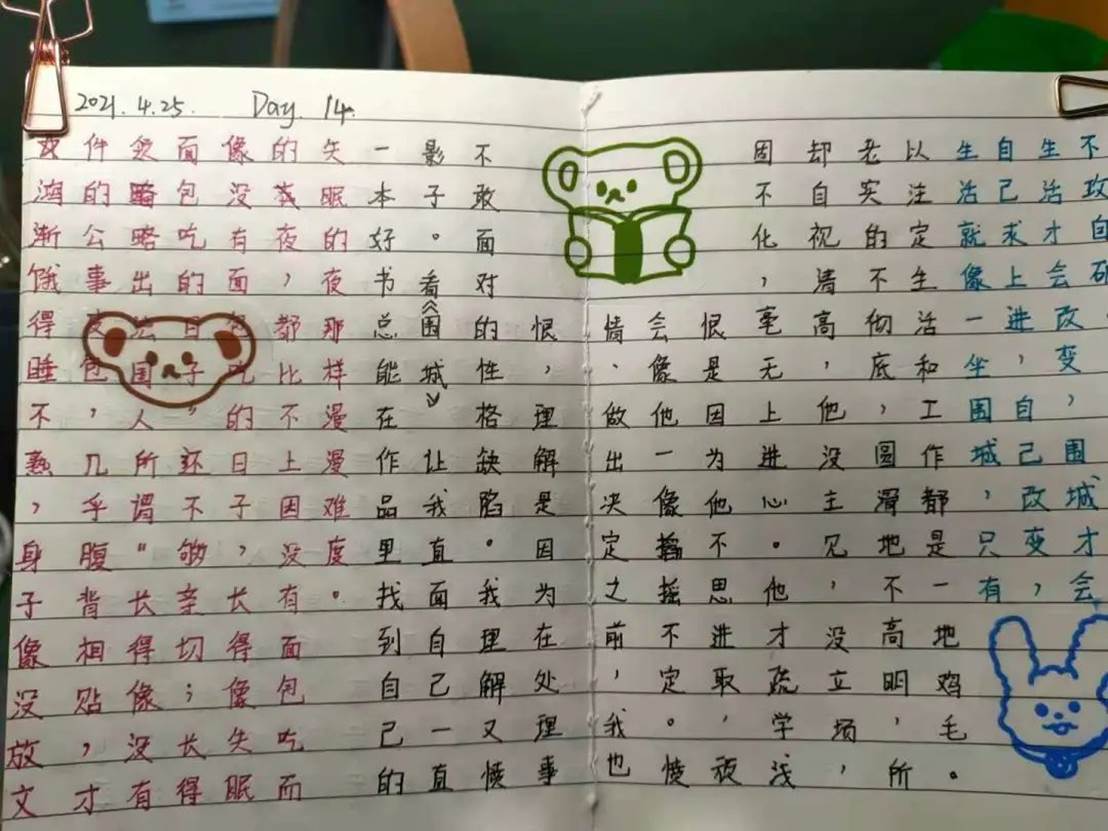 2021.4.25. Day 14.
鸿渐饿得睡不熟，身子像没放文
件的公事皮包，几乎腹背相贴，才
略出法国人所谓“长得像没有
面包吃的日子”还不够亲切；长得
像没有面包吃的日子，长得像失眠
的夜，都比不上因没有面包吃而
失眠的夜那样漫漫难度。
一本好书总能在作品里找到自己的
影子。看《围城》让我直面自己一直
不敢面对的性格缺陷。我理解又愤
恨，理解是因为在处理事
情、做出决定之前，我也
会像他一像摇不定。愤
恨是因为他不思进取，顽
固不化，毫无上进心。他才疏学浅
却自视清高，他没主见，没立场，
老实的不彻底，圆滑地不高明，所
以注定生活和工作都是一地鸡毛。
生活就像一坐围城，只有
自己求上进，自己改变，
生活才会改变，围城才会
不攻自破